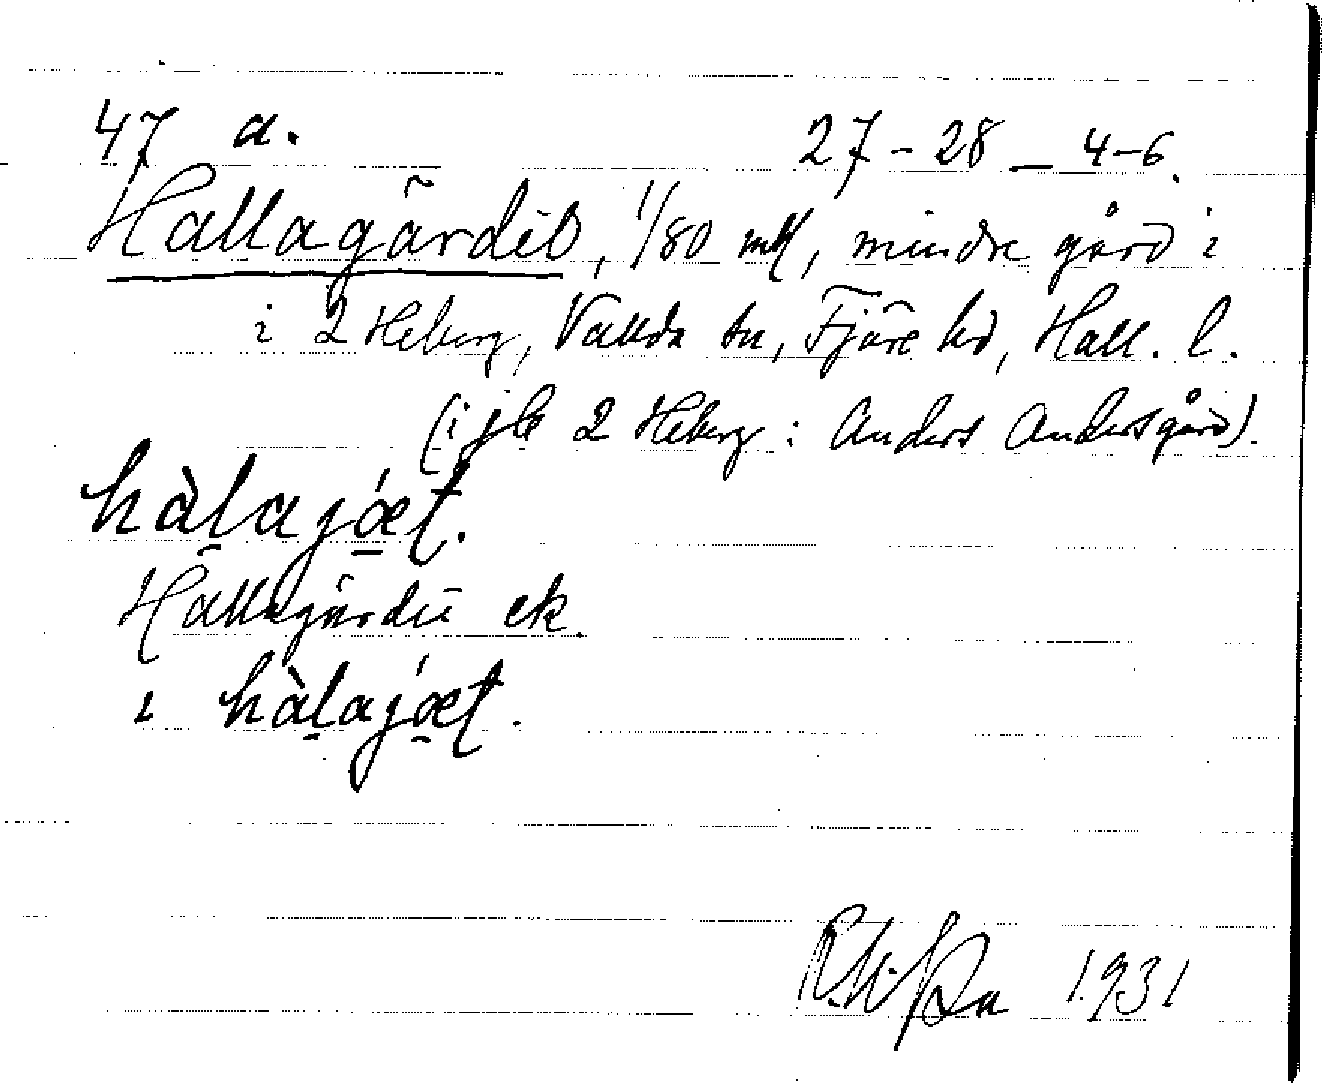 47 a. 27-28 _ 4-6.
Hallagärdet, 1/80 mtl, mindre gård i
i 2 Heberg, Vallda sn, Fjäre hd, Hall. l.
(i jb 2 Heberg: Anders Andersgård).
hàlajǽt.
Hallagärdet ek.
i hàlajǽt.
1931